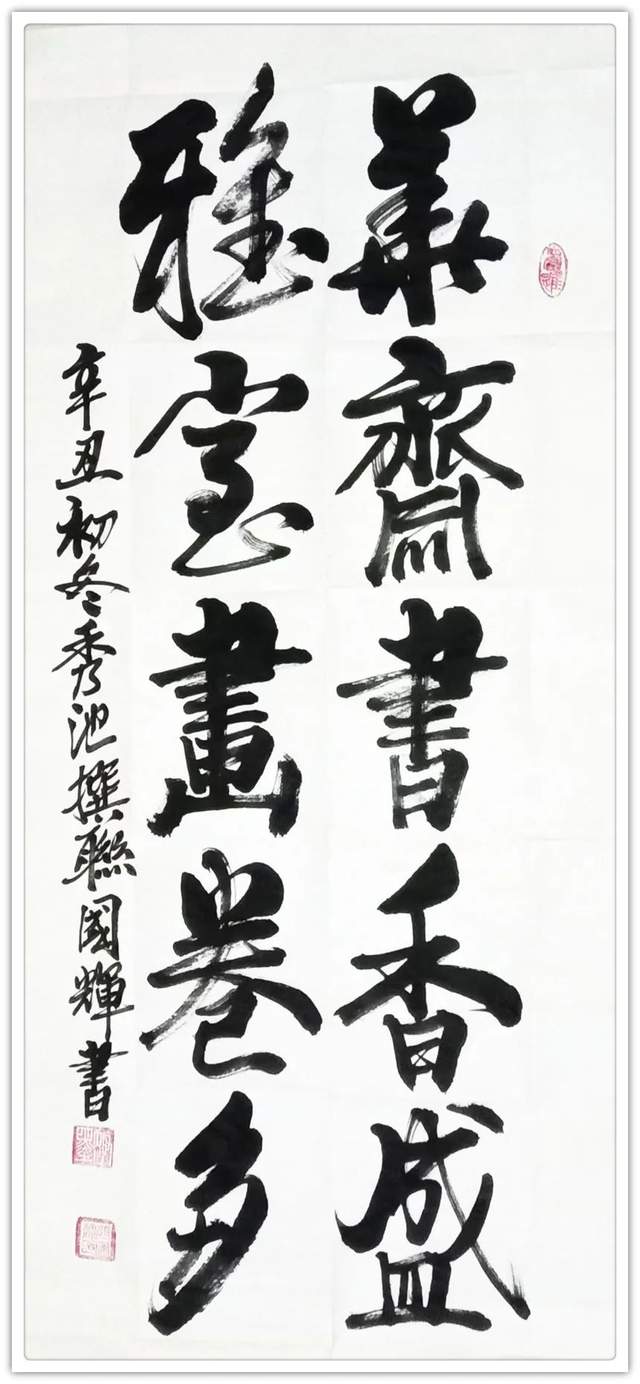 華齋書香盛
雅室畫卷多
辛丑初冬秀池撰聯國輝書